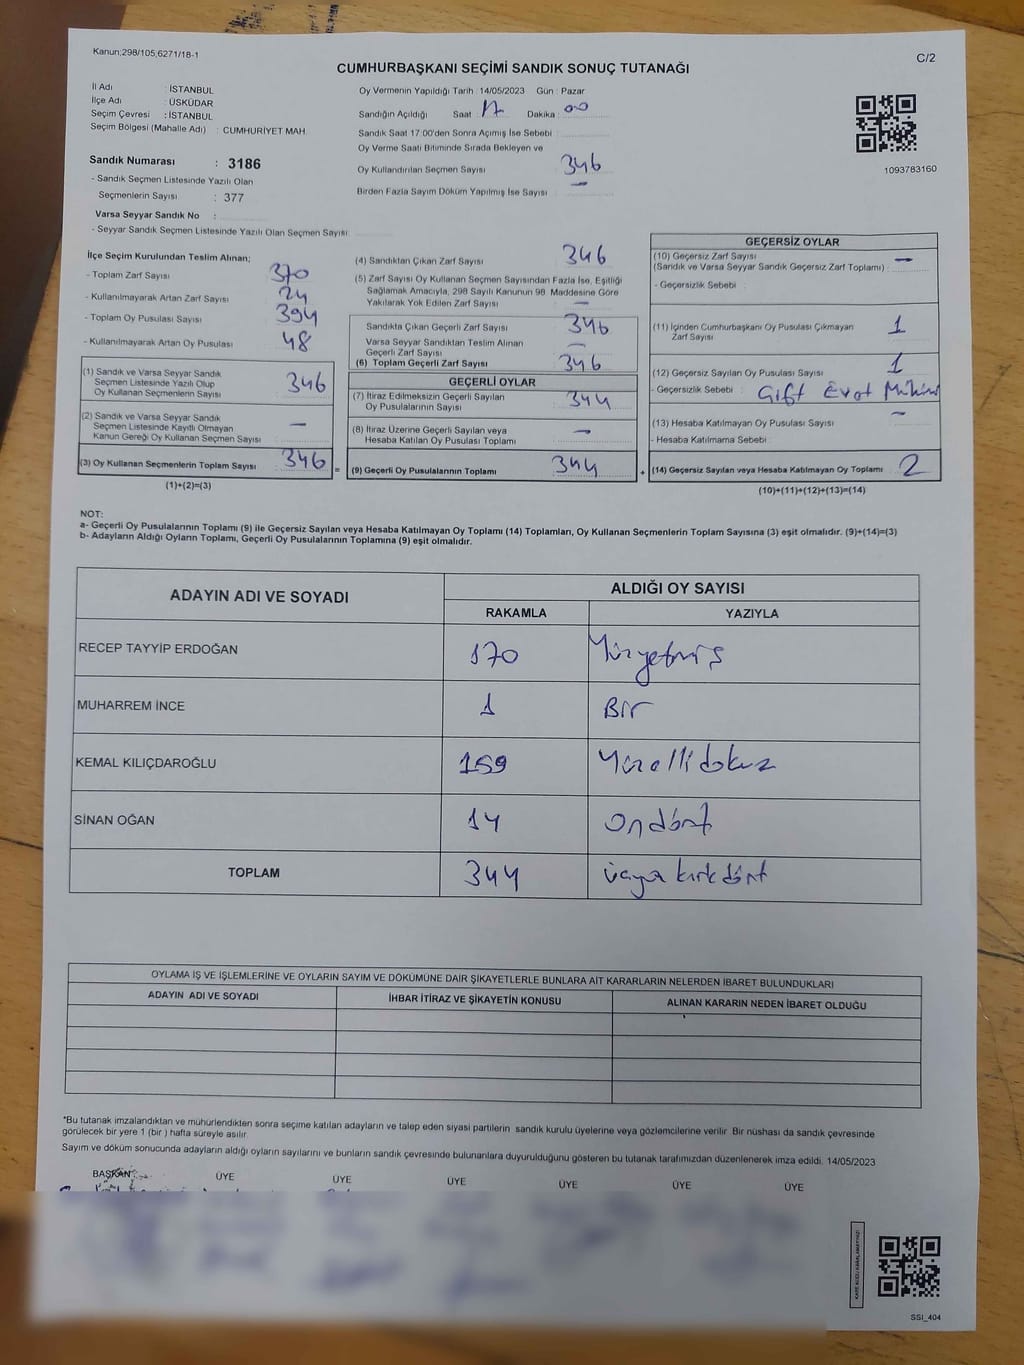 Kanun;298/105,6271/18-1
C/2
CUMHURBAŞKANI SEÇİMİ SANDIK SONUÇ TUTANAĞI
İl Adı : İSTANBUL
İlçe Adı : ÜSKÜDAR
Seçim Çevresi : İSTANBUL
Seçim Bölgesi (Mahalle Adı) : CUMHURİYET MAH.
Sandık Numarası : 3186
- Sandık Seçmen Listesinde Yazılı Olan
Seçmenlerin Sayısı : 377
Varsa Seyyar Sandık No :
- Seyyar Sandık Seçmen Listesinde Yazılı Olan Seçmen Sayısı:
Oy Vermenin Yapıldığı Tarih : 14/05/2023 Gün : Pazar
Sandığın Açıldığı Saat : 17 Dakika : 00
Sandık Saat 17:00'den Sonra Açımış İse Sebebi :
Oy Verme Saati Bitiminde Sırada Bekleyen ve
Oy Kullandırılan Seçmen Sayısı : 346
Birden Fazla Sayım Döküm Yapılmış İse Sayısı : —
1093783160
İlçe Seçim Kurulundan Teslim Alınan;
- Toplam Zarf Sayısı 370
- Kullanılmayarak Artan Zarf Sayısı : 24
- Toplam Oy Pusulası Sayısı : 394
- Kullanılmayarak Artan Oy Pusulası : 48
(1) Sandık ve Varsa Seyyar Sandık
Seçmen Listesinde Yazılı Olup
Oy Kullanan Seçmenlerin Sayısı : 346
(2) Sandık ve Varsa Seyyar Sandık
Seçmen Listesinde Kayıtlı Olmayan
Kanun Gereği Oy Kullanan Seçmen Sayısı : —
(3) Oy Kullanan Seçmenlerin Toplam Sayısı : 346
=
(1)+(2)=(3)
(4) Sandıktan Çıkan Zarf Sayısı : 346
(5) Zarf Sayısı Oy Kullanan Seçmen Sayısından Fazla İse, Eşitliği
Sağlamak Amacıyla, 298 Sayılı Kanunun 98. Maddesine Göre
Yakılarak Yok Edilen Zarf Sayısı : —
Sandıkta Çıkan Geçerli Zarf Sayısı : 346
Varsa Seyyar Sandıktan Teslim Alınan
Geçerli Zarf Sayısı : —
(6) Toplam Geçerli Zarf Sayısı : 346
GEÇERLİ OYLAR
(7) İtiraz Edilmeksizin Geçerli Sayılan
Oy Pusulalarının Sayısı : 344
(8) İtiraz Üzerine Geçerli Sayılan veya
Hesaba Katılan Oy Pusulası Toplamı : —
(9) Geçerli Oy Pusulalarının Toplamı : 344
+
GEÇERSİZ OYLAR
(10) Geçersiz Zarf Sayısı
(Sandık ve Varsa Seyyar Sandık Geçersiz Zarf Toplamı) : —
- Geçersizlik Sebebi :
(11) İçinden Cumhurbaşkanı Oy Pusulası Çıkmayan
Zarf Sayısı : 1
(12) Geçersiz Sayılan Oy Pusulası Sayısı : 1
- Geçersizlik Sebebi : Çift Evet
(13) Hesaba Katılmayan Oy Pusulası Sayısı : —
- Hesaba Katılmama Sebebi :
(14) Geçersiz Sayılan veya Hesaba Katılmayan Oy Toplamı : 2
(10)+(11)+(12)+(13)=(14)
NOT:
a- Geçerli Oy Pusulalarının Toplamı (9) ile Geçersiz Sayılan veya Hesaba Katılmayan Oy Toplamı (14) Toplamları, Oy Kullanan Seçmenlerin Toplam Sayısına (3) eşit olmalıdır. (9)+(14)=(3)
b- Adayların Aldığı Oyların Toplamı, Geçerli Oy Pusulalarının Toplamına (9) eşit olmalıdır.
ADAYIN ADI VE SOYADI
ALDIĞI OY SAYISI
RAKAMLA YAZIYLA
RECEP TAYYİP ERDOĞAN 170 Yüzyetmiş
MUHARREM İNCE 1 Bir
KEMAL KILIÇDAROĞLU 159 Yüzellidokuz
SİNAN OĞAN 14 ondört
TOPLAM 344 üçyüz kırk dört
OYLAMA İŞ VE İŞLEMLERİNE VE OYLARIN SAYIM VE DÖKÜMÜNE DAİR ŞİKAYETLERLE BUNLARA AİT KARARLARIN NELERDEN İBARET BULUNDUKLARI
ADAYIN ADI VE SOYADI İHBAR İTİRAZ VE ŞİKAYETİN KONUSU ALINAN KARARIN NEDEN İBARET OLDUĞU
*Bu tutanak imzalandıktan ve mühürlendikten sonra seçime katılan adayların ve talep eden siyasi partilerin sandık kurulu üyelerine veya gözlemcilerine verilir. Bir nüshası da sandık çevresinde
görülecek bir yere 1 (bir ) hafta süreyle asılır.
Sayım ve döküm sonucunda adayların aldığı oyların sayılarını ve bunların sandık çevresinde bulunanlara duyurulduğunu gösteren bu tutanak tarafımızdan düzenlenerek imza edildi. 14/05/2023
BAŞKAN ÜYE ÜYE ÜYE ÜYE ÜYE ÜYE
KARE KODU KARALAMAYINIZ!
SSI_404